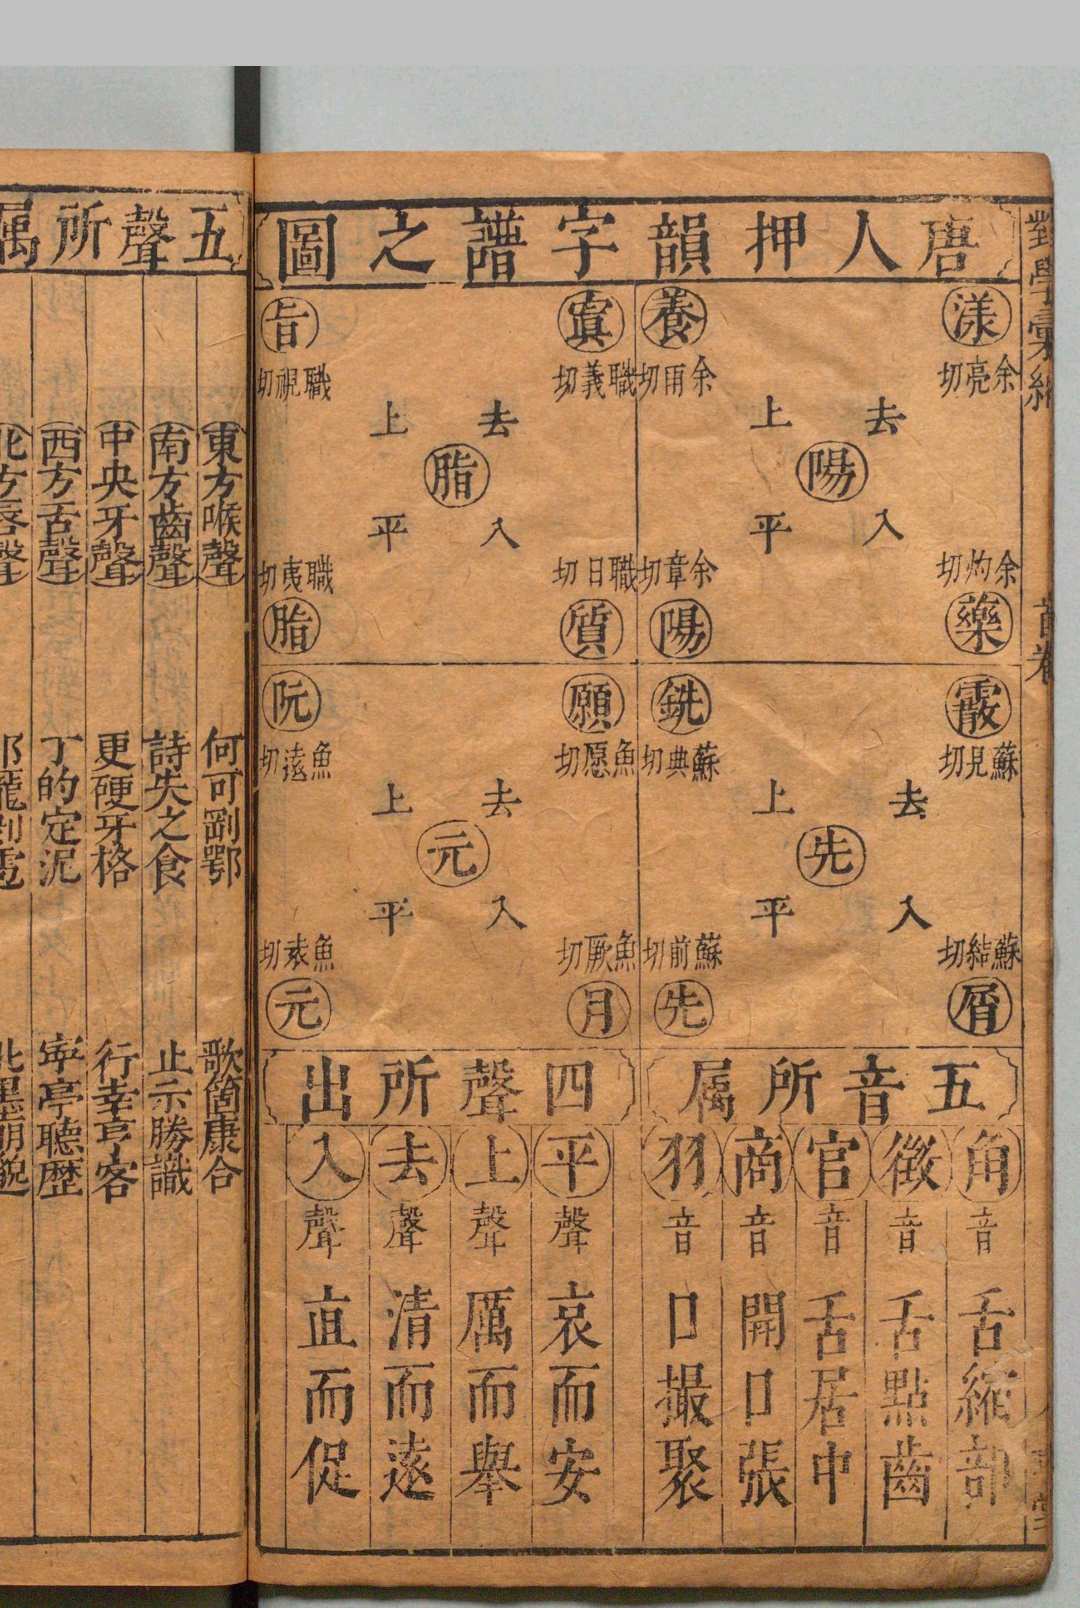 唐人押韻字譜之圖
漾
余亮切
養
余雨切
去
上
陽
入
平
余灼切
藥
余章切
陽
寘
職義切
旨
職視切
去
上
脂
入
平
職日切
質
職夷切
脂
霰
蘇見切
銑
蘇典切
去
上
先
入
平
蘇結切
屑
蘇前切
先
願
魚愿切
阮
魚遠切
去
上
元
入
平
魚厥切
月
魚袁切
元
五音所属
角音舌縮部
徵音舌點齒
宫音舌居中
商音開口張
羽音口撮聚
四聲所出
平聲哀而安
上聲厲而舉
去聲清而遠
入聲直而促
五聲所属
東方喉聲 何可剛鄂 歌箇康合
南方齒聲 詩失之食 止示勝識
中央牙聲 更硬牙格 行幸亨客
西方舌聲 丁的定泥 寧亭聽歴
北方唇聲
首卷